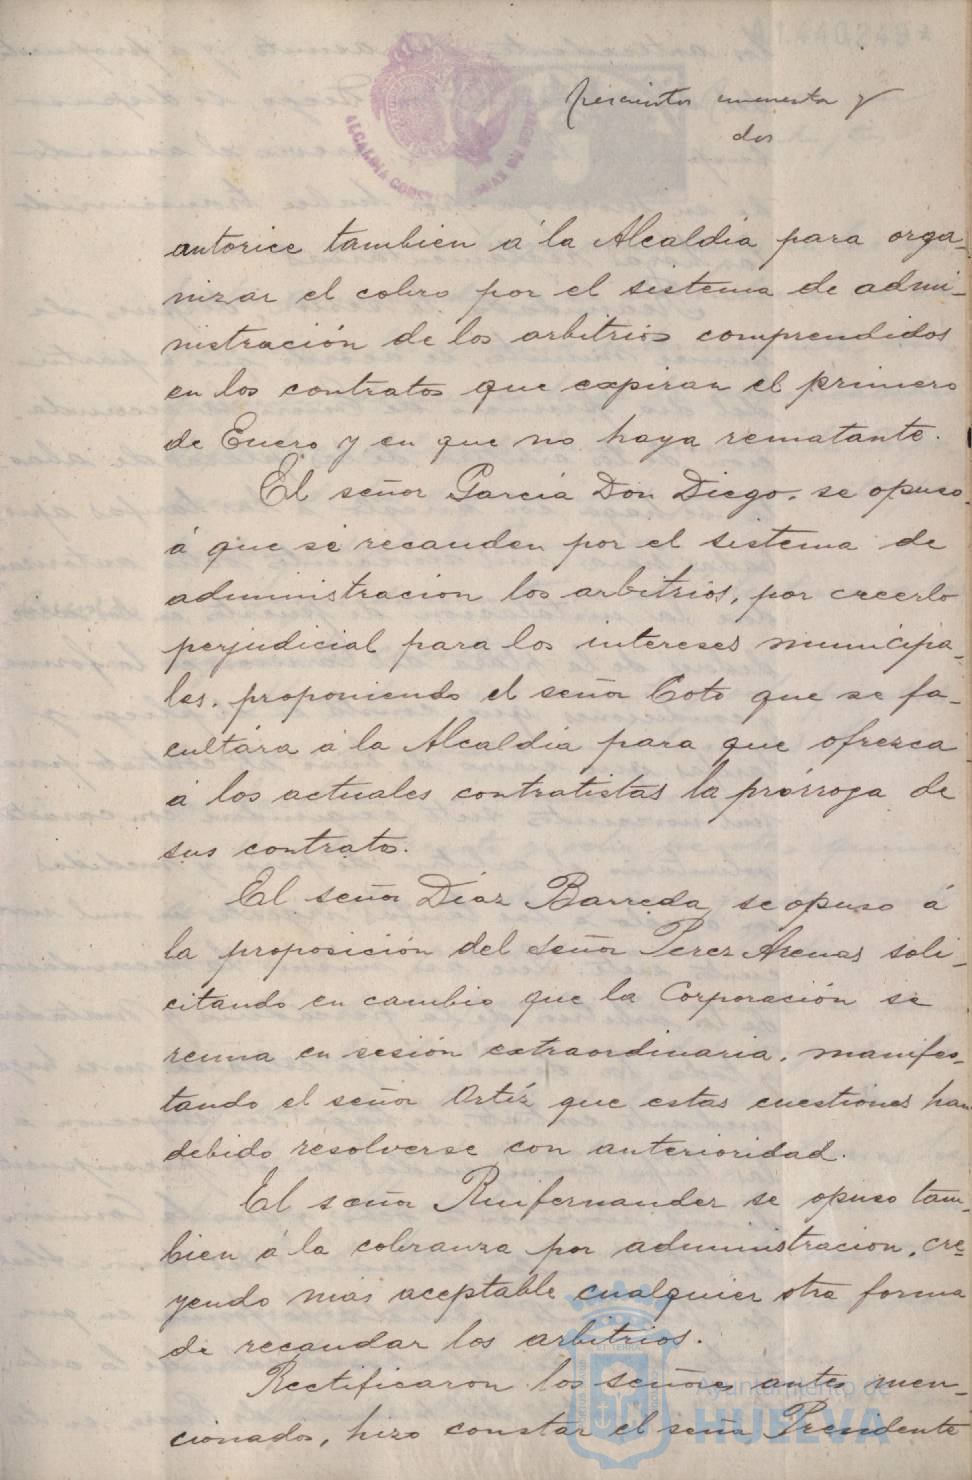 A1440249*
ALCALDIA CONST
trescientos cincuenta y
dos
autorice tambien á la Alcaldía para orga-
nizar el cobro por el sistema de admi-
nistración de los arbitrios comprendidos
en los contratos que expiran el primero
de Enero y en que no haya rematante.
El señor García Don Diego, se opuso
á que se recauden por el sistema de
administracion los arbitrios, por creerlo
perjudicial para los intereses municipa-
les, proponiendo el señor Coto que se fa-
cultára á la Alcaldía para que ofrezca
á los actuales contratistas la prórroga de
sus contratos.
El señor Díaz Barreda, se opuso á
la proposición del señor Perez Arenas soli-
citando en cambio que la Corporación se
reuna en sesión extraordinaria, manifes-
tando el señor Ortíz que estas cuestiones han
debido resolverse con anterioridad.
El señor Ruifernandez se opuso tam-
bien á la cobranza por administracion, cre-
yendo mas aceptable cualquier otra forma
de recaudar los arbitrios.
Rectificaron los señores antes men-
cionados, hizo constar el señor Presidente
Ayuntamiento de
HUELVA